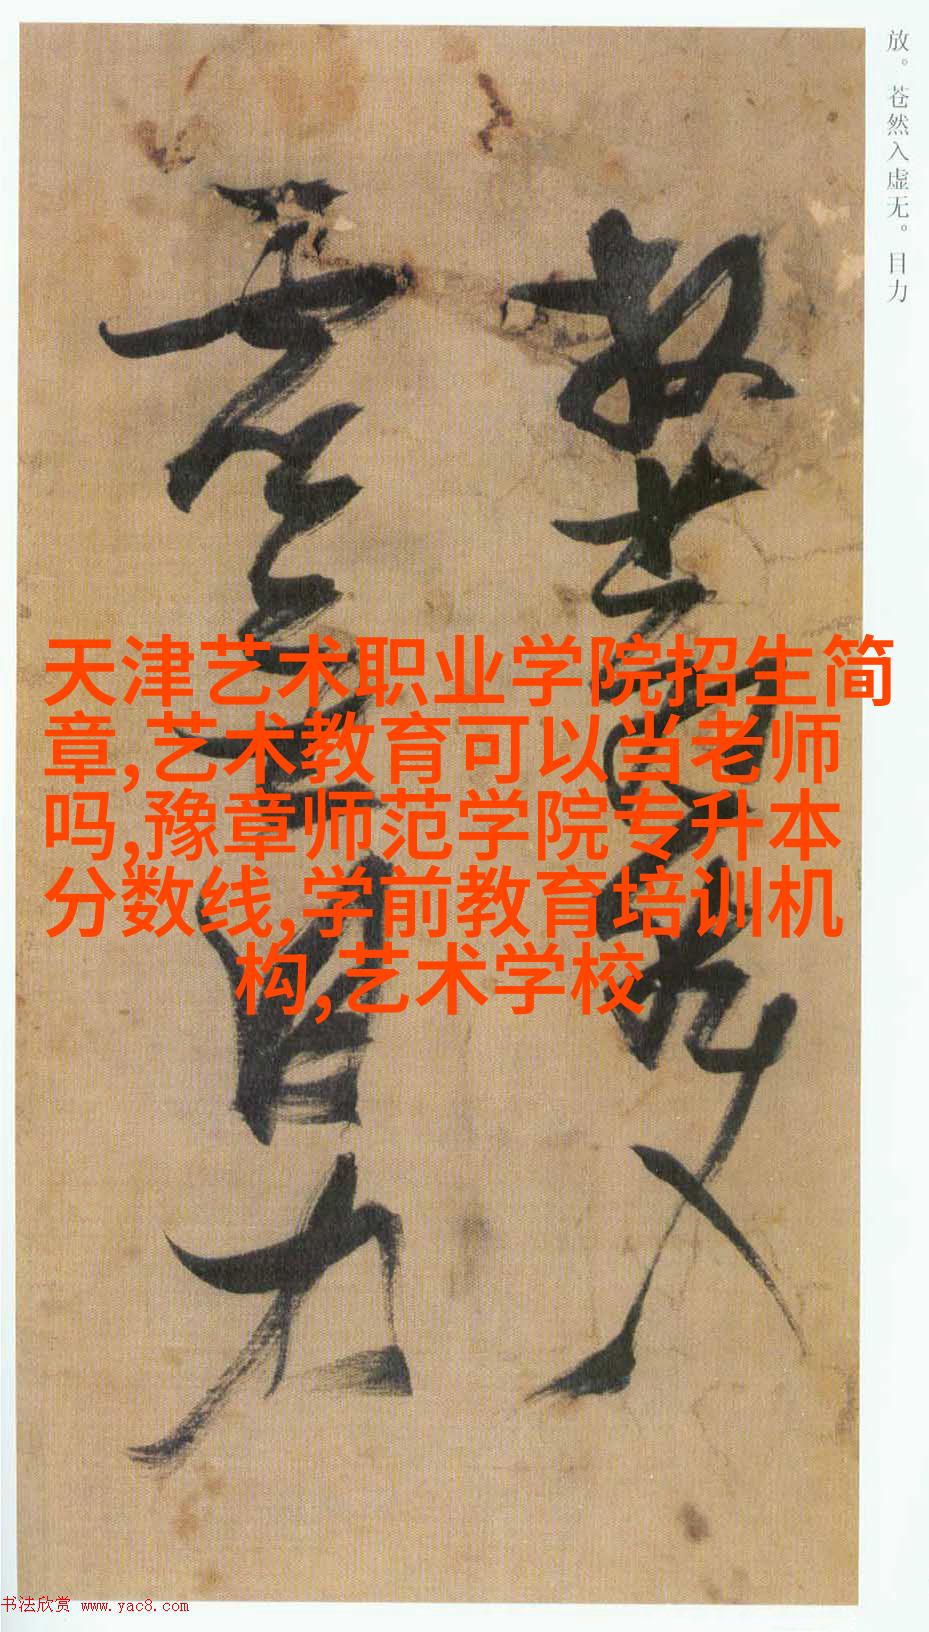 放。苍然入虚无。目力
放苍然入
虚无目力
天津艺术职业学院招生简
章,艺术教育可以当老师
吗,豫章师范学院专升本
分数线,学前教育培训机
构,艺术学校
书法欣赏 www.yac8.com